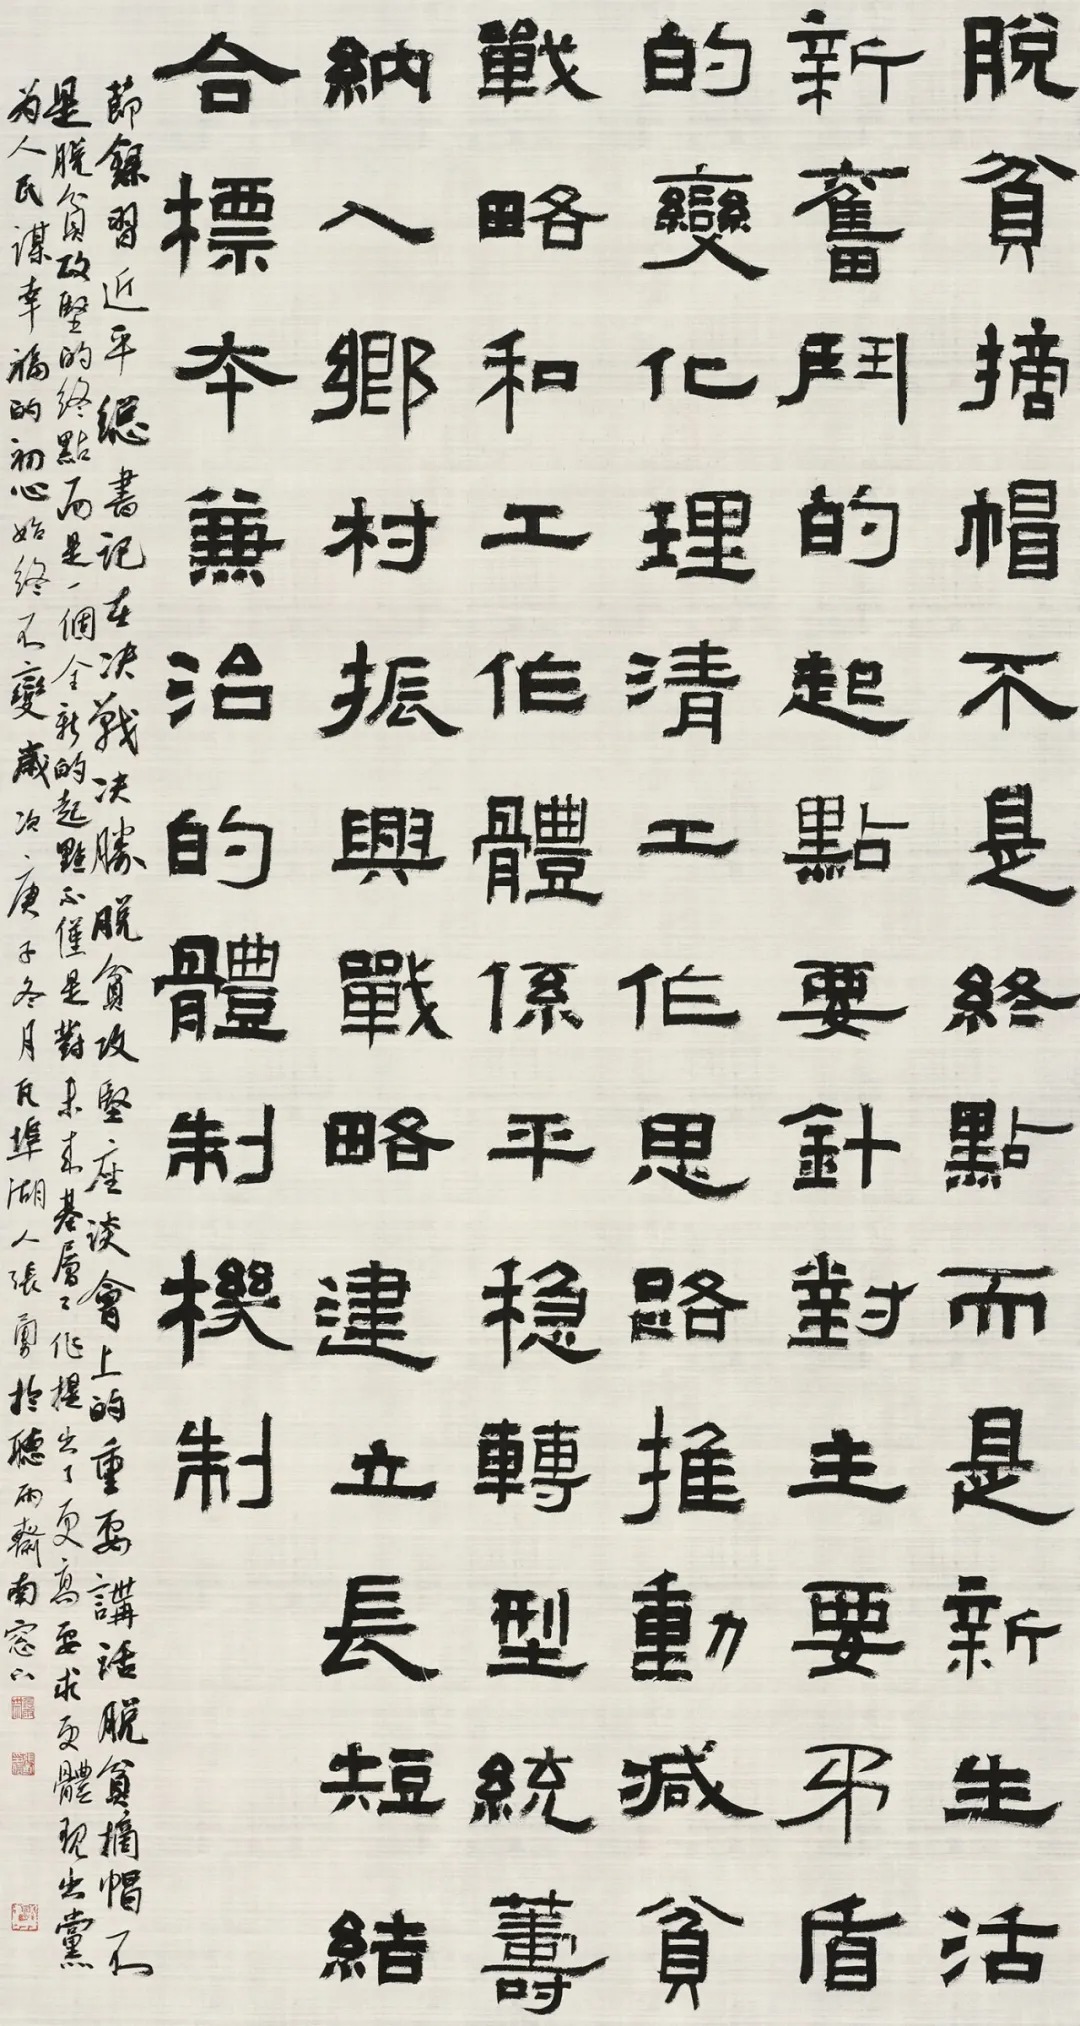 脫貧摘帽不是終點而是新生活
新奮鬥的起點要針對主要矛盾
的變化理清工作思路推動減貧
戰略和工作體係平穩轉型統籌
納入鄉村振興戰略建立長短結
合標本兼治的體制機制
節錄習近平總書記在决戰决勝脫貧攻堅座談會上的重要講話脫貧摘帽不
是脫貧攻堅的終點而是一個全新的起點不僅是對未來基層工作提出了更高要求更體現出黨
为人民謀幸福的初心始終不變歲次庚子冬月瓦埠湖人張勇於聽雨齋南窓下